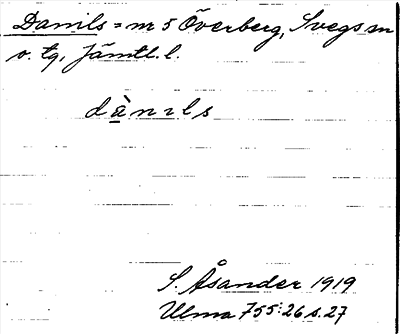 Danils = nr 5 Överberg, Svegs sn
o. tg, Jämtl. l.
dànɩls
S. Åsander 1919
Ulma 755:26 s. 27